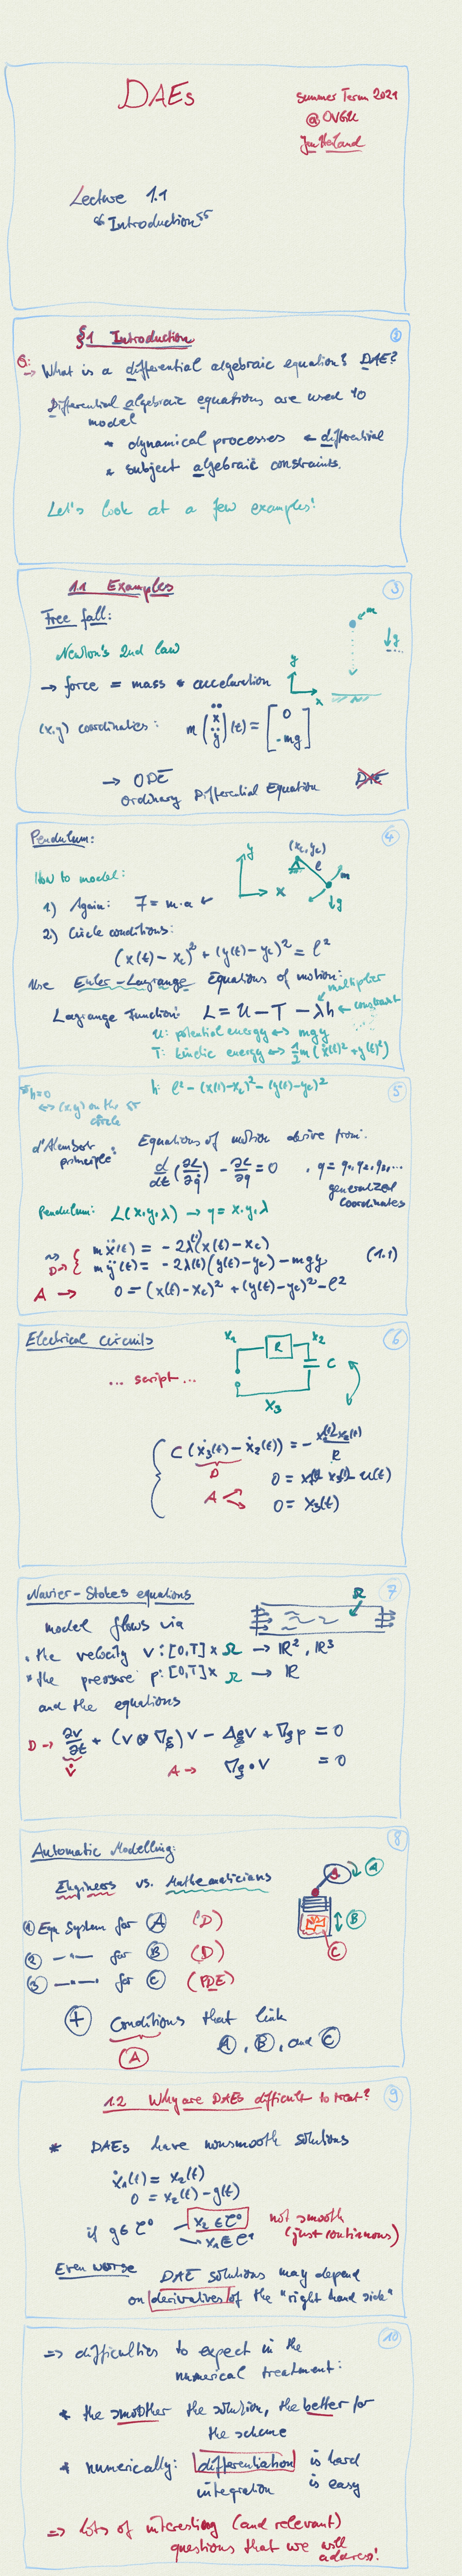 DAEs
Summer Term 2021
@OVGU
Jan Heiland
Lecture 1.1
"Introduction"
§1 Introduction
2
Q:
→ What is a differential algebraic equation? DAE?
Differential algebraic equations are used to
model
* dynamical processes ← differential
* subject algebraic constraints.
Let's look at a few examples!
1.1 Examples
3
Free fall:
m
Newton's 2nd law
↓g
→ force = mass * acceleration
y
x
(x,y) coordinates: m (ẍ ÿ)(t) = [0 -mg]
→ ODE
DAE
Ordinary Differential Equation
Pendulum:
4
(x_c, y_c)
y
l
m
x
↓g
How to model:
1) Again: F = m·a
2) Circle conditions:
(x(t) - x_c)² + (y(t) - y_c)² = l²
Use Euler-Lagrange Equations of motion:
multiplier
Lagrange Function: L = U - T - λh ← constraint
U: potential energy ↔ mgy
T: kinetic energy ↔ ½m(ẋ(t)² + ẏ(t)²)
5
h: l² - (x(t)-x_c)² - (y(t)-y_c)²
"h=0
↔ (x,y) on the "
circle
d'Alembert
principle:
Equations of motion derive from:
d/dt (∂L/∂q̇) - ∂L/∂q = 0 , q = q₁, q₂, q₃, ...
generalized
coordinates
Pendulum: L(x,y,λ) → q = x,y,λ
m ẍ(t) = -2λ(t)(x(t) - x_c)
D → { m ÿ(t) = -2λ(t)(y(t) - y_c) - mgy (1.1)
A → 0 = (x(t) - x_c)² + (y(t) - y_c)² - l²
Electrical circuits
6
x₁
R
x₂
C
x₃
... script ...
C(ẋ₃(t) - ẋ₂(t)) = -
R
D
0 = x₁(t) - x₃(t) - u(t)
A
0 = x₃(t)
Navier-Stokes equations
7
Ω
model flows via
• the velocity v: [0,T] × Ω → ℝ², ℝ³
* the pressure p: [0,T] × Ω → ℝ
and the equations
D → ∂v/∂t + (v ⊗ ∇ξ) v - Δξ v + ∇ξ p = 0
v̇
A → ∇ξ · v = 0
Automatic Modelling:
8
Engineers vs. Mathematicians
A
A
B
C
① Eqn System for Ⓐ (D)
② —"— for Ⓑ (D)
③ —"— for Ⓒ (PDE)
⊕ Conditions that link
Ⓐ, Ⓑ, and Ⓒ
Ⓐ
1.2 Why are DAEs difficult to treat?
9
* DAEs have nonsmooth solutions
ẋ₁(t) = x₂(t)
0 = x₂(t) - g(t)
if g ∈ C⁰ → x₂ ∈ C⁰ not smooth
→ x₁ ∈ C¹ (just continuous)
Even worse DAE solutions may depend
on derivatives of the "right hand side"
10
=> difficulties to expect in the
numerical treatment:
* the smoother the solution, the better for
the scheme
* numerically: differentiation is hard
integration is easy
=> lots of interesting (and relevant)
questions that we will
address!